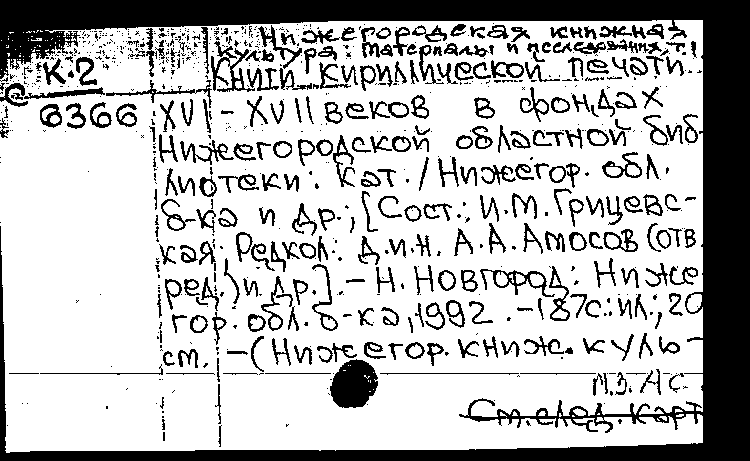 Нижегородская книжная
культура: Материалы и исследования, т. 1
К.2
Книги кириллической печати
6366
XVI - XVII веков в фондах
Нижегородской областной биб-
лиотеки: Кат. / Нижегор. обл.
б-ка и др.; [Сост.: И.М. Грицевс-
кая; Редкол.: д.и.н. А.А. Амосов (отв.
ред.) и др.]. - Н. Новгород: Ниже
гор. обл. б-ка, 1992. - 187с.: ил.; 20
см. - (Нижегор. книж. куль-
М.З. АС
См. след. карт